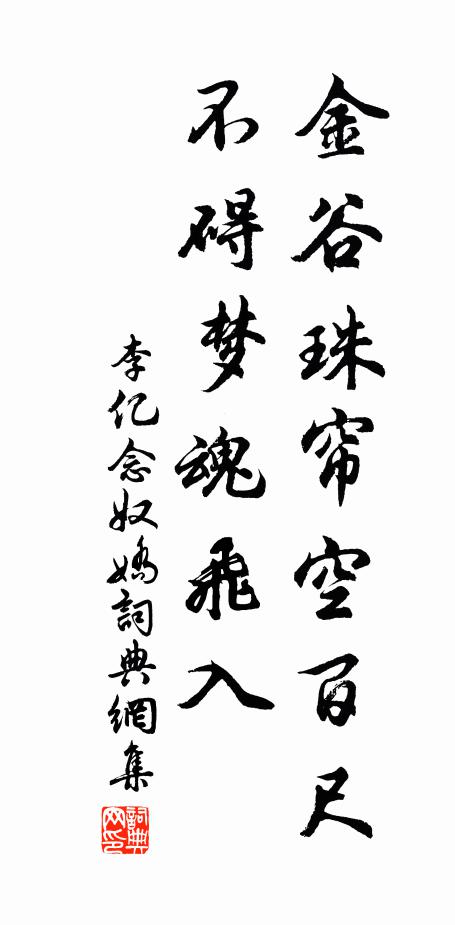 金谷珠帘空百尺
不碍梦魂飛入
李亿念奴嬌詞典網集
詞典网印